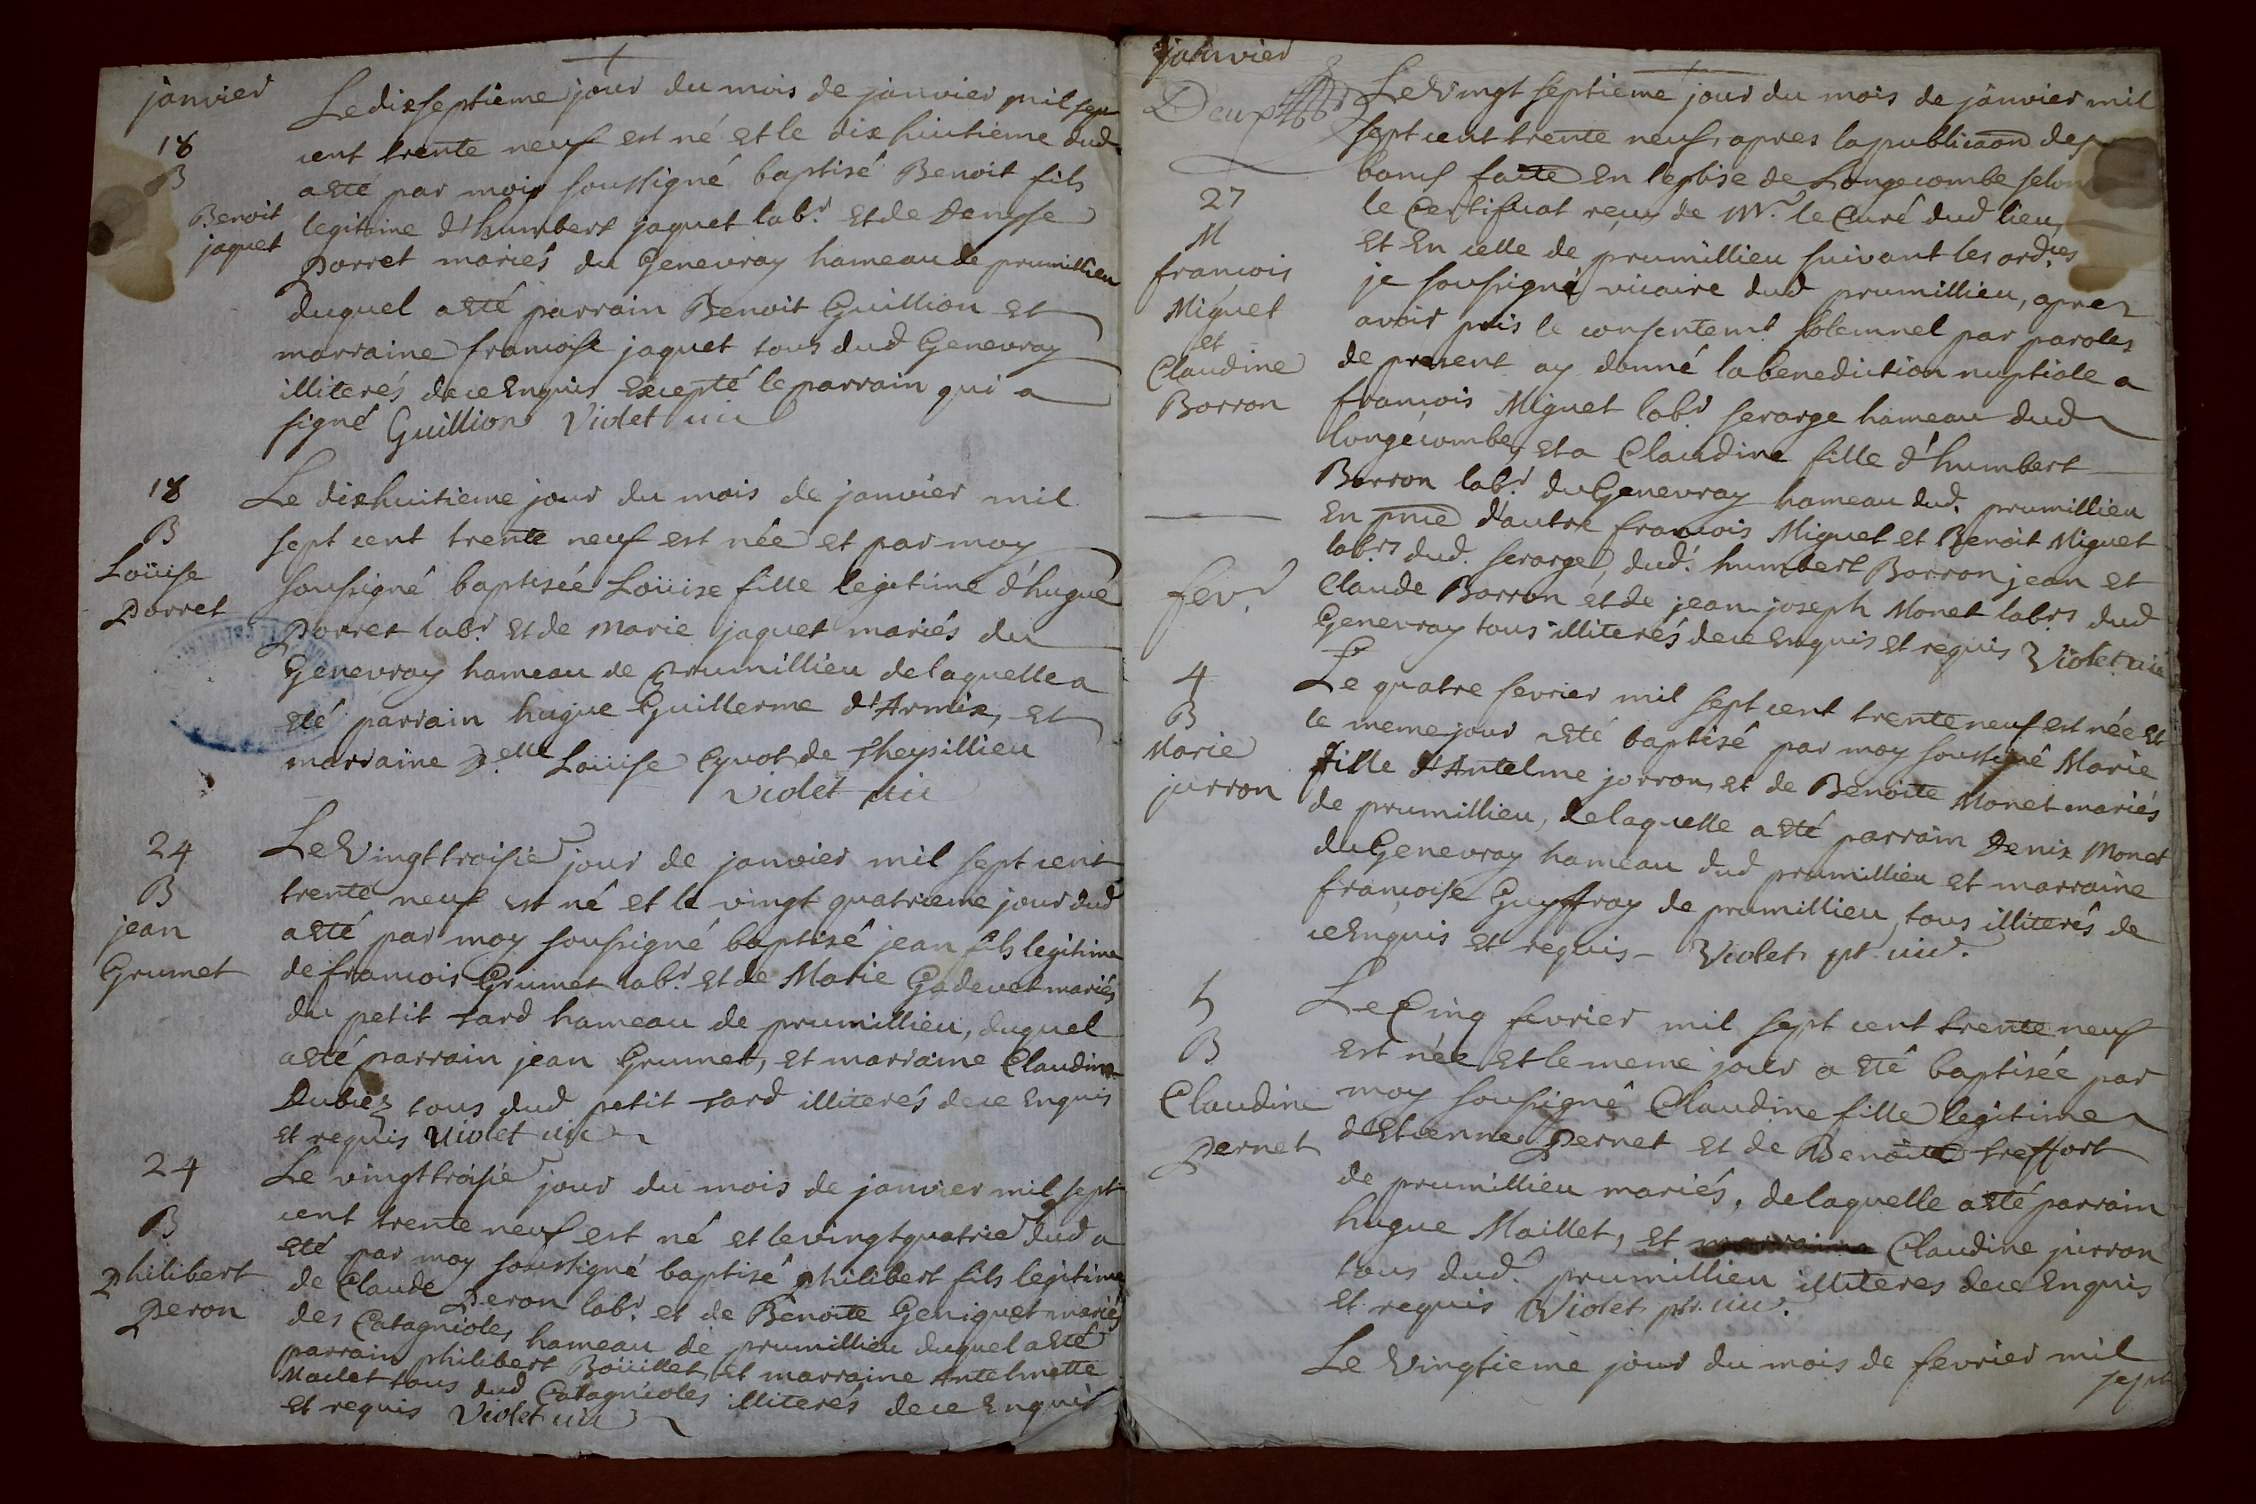 janvier
Le dixseptieme jour du mois de janvier mil sept
cent trente neuf est né et le dix huitieme dud
18
B
Benoit
jaquet
a eté par moy soussigné baptisé Benoit fils
legitime d'humbert jaquet labr. et de denyse
Porret mariés du Genevray hameau de prumillieu
duquel a eté parrain Benoit Guillion et
marraine francoise jaquet tous dud Genevray
illiterés de ce Enquis Excepté le parrain qui a
signé Guillion Violet vic
18
B
Loüise
Porret
Le dixhuitieme jour du mois de janvier mil
sept cent trente neuf est née et par moy
sousigné baptisée Loüise fille legitime d'hugue
Porret labr. et de Marie jaquet mariés du
Genevray hameau de Prumillieu de laquelle a
eté parrain hugue Guillerme d'Armix, et
marraine Delle Loüise Cyvot de Theysillieu
Violet vic
24
B
jean
Grumet
Le Vingt troisie jour de janvier mil sept cent
trente neuf est né et le vingt quatrieme jour dud
a eté par moy sousigné baptisé jean fils legitime
de francois Grumet labr. et de Marie Gadevet mariés
du petit tard hameau de prumillieu, duquel
a eté parrain jean Grumet, et marraine Claudine
Dubiez tous dud petit tard illiterés de ce Enquis
et requis Violet vic
24
B
Philibert
Peron
Le vingt troisie jour du mois de janvier mil sept
cent trente neuf est né et le vingt quatrie dud a
eté par moy soussigné baptisé philibert fils legitime
de Claude Peron labr. et de Benoite Geniquet mariés
des Catagnioles hameau de prumillieu duquel a eté
parrain philibert Boüillet et marraine Antelmette
Maclet tous dud Catagnioles illiterés de ce Enquis
et requis Violet vic
janvier
Deux
27
M
francois
Miguet
et
Claudine
Borron
Le Vingt septieme jour du mois de janvier mil
sept cent trente neuf, apres la publicaon des
bancs faite En leglise de Longecombe selon
le Certificat reçu de Mr. le Curé dud lieu,
et En celle de prumillieu suivant les ordres
je sousigné vicaire dud prumillieu, aprez
avoir pris le consentemt solemnel par paroles
de present ay donné la benediction nuptiale a
francois Miguet labr serarge hameau dud
longecombe, et a Claudine fille d'humbert
Borron labr. du Genevray hameau dud. prumillieu
En pnce d'autre francois Miguet et Benoit Miguet
labrs dud. serarge, dud. humbert Borron jean et
Claude Borron et de jean joseph Monet labrs dud
Genevray tous illiterés de ce Enquis et requis Violet vic
fevr
4
B
Marie
jurron
Le quatre fevrier mil sept cent trente neuf est née et
le meme jour a eté baptisé par moy soussigné Marie
fille d'Antelme jorron, et de Benoite Monet mariés
de prumillieu, de laquelle a eté parrain Denix Monet
du Genevray hameau dud prumillieu et marraine
françoise Guyffray de prumillieu, tous illiterés de
ce Enquis et requis - Violet pt. vic.
5
B
Claudine
Pernet
Le Cinq fevrier mil sept cent trente neuf
est née et le meme jour a eté baptisée par
moy sousigné Claudine fille legitime
d'Etienne Pernet et de Benoite treffort
de prumillieu mariés, de laquelle a eté parrain
hugue Maillet, et Claudine jurron
tous dud. prumillieu illiteres de ce Enquis
et requis Violet ptr. vic.
Le Vingtieme jour du mois de fevrier mil
sept